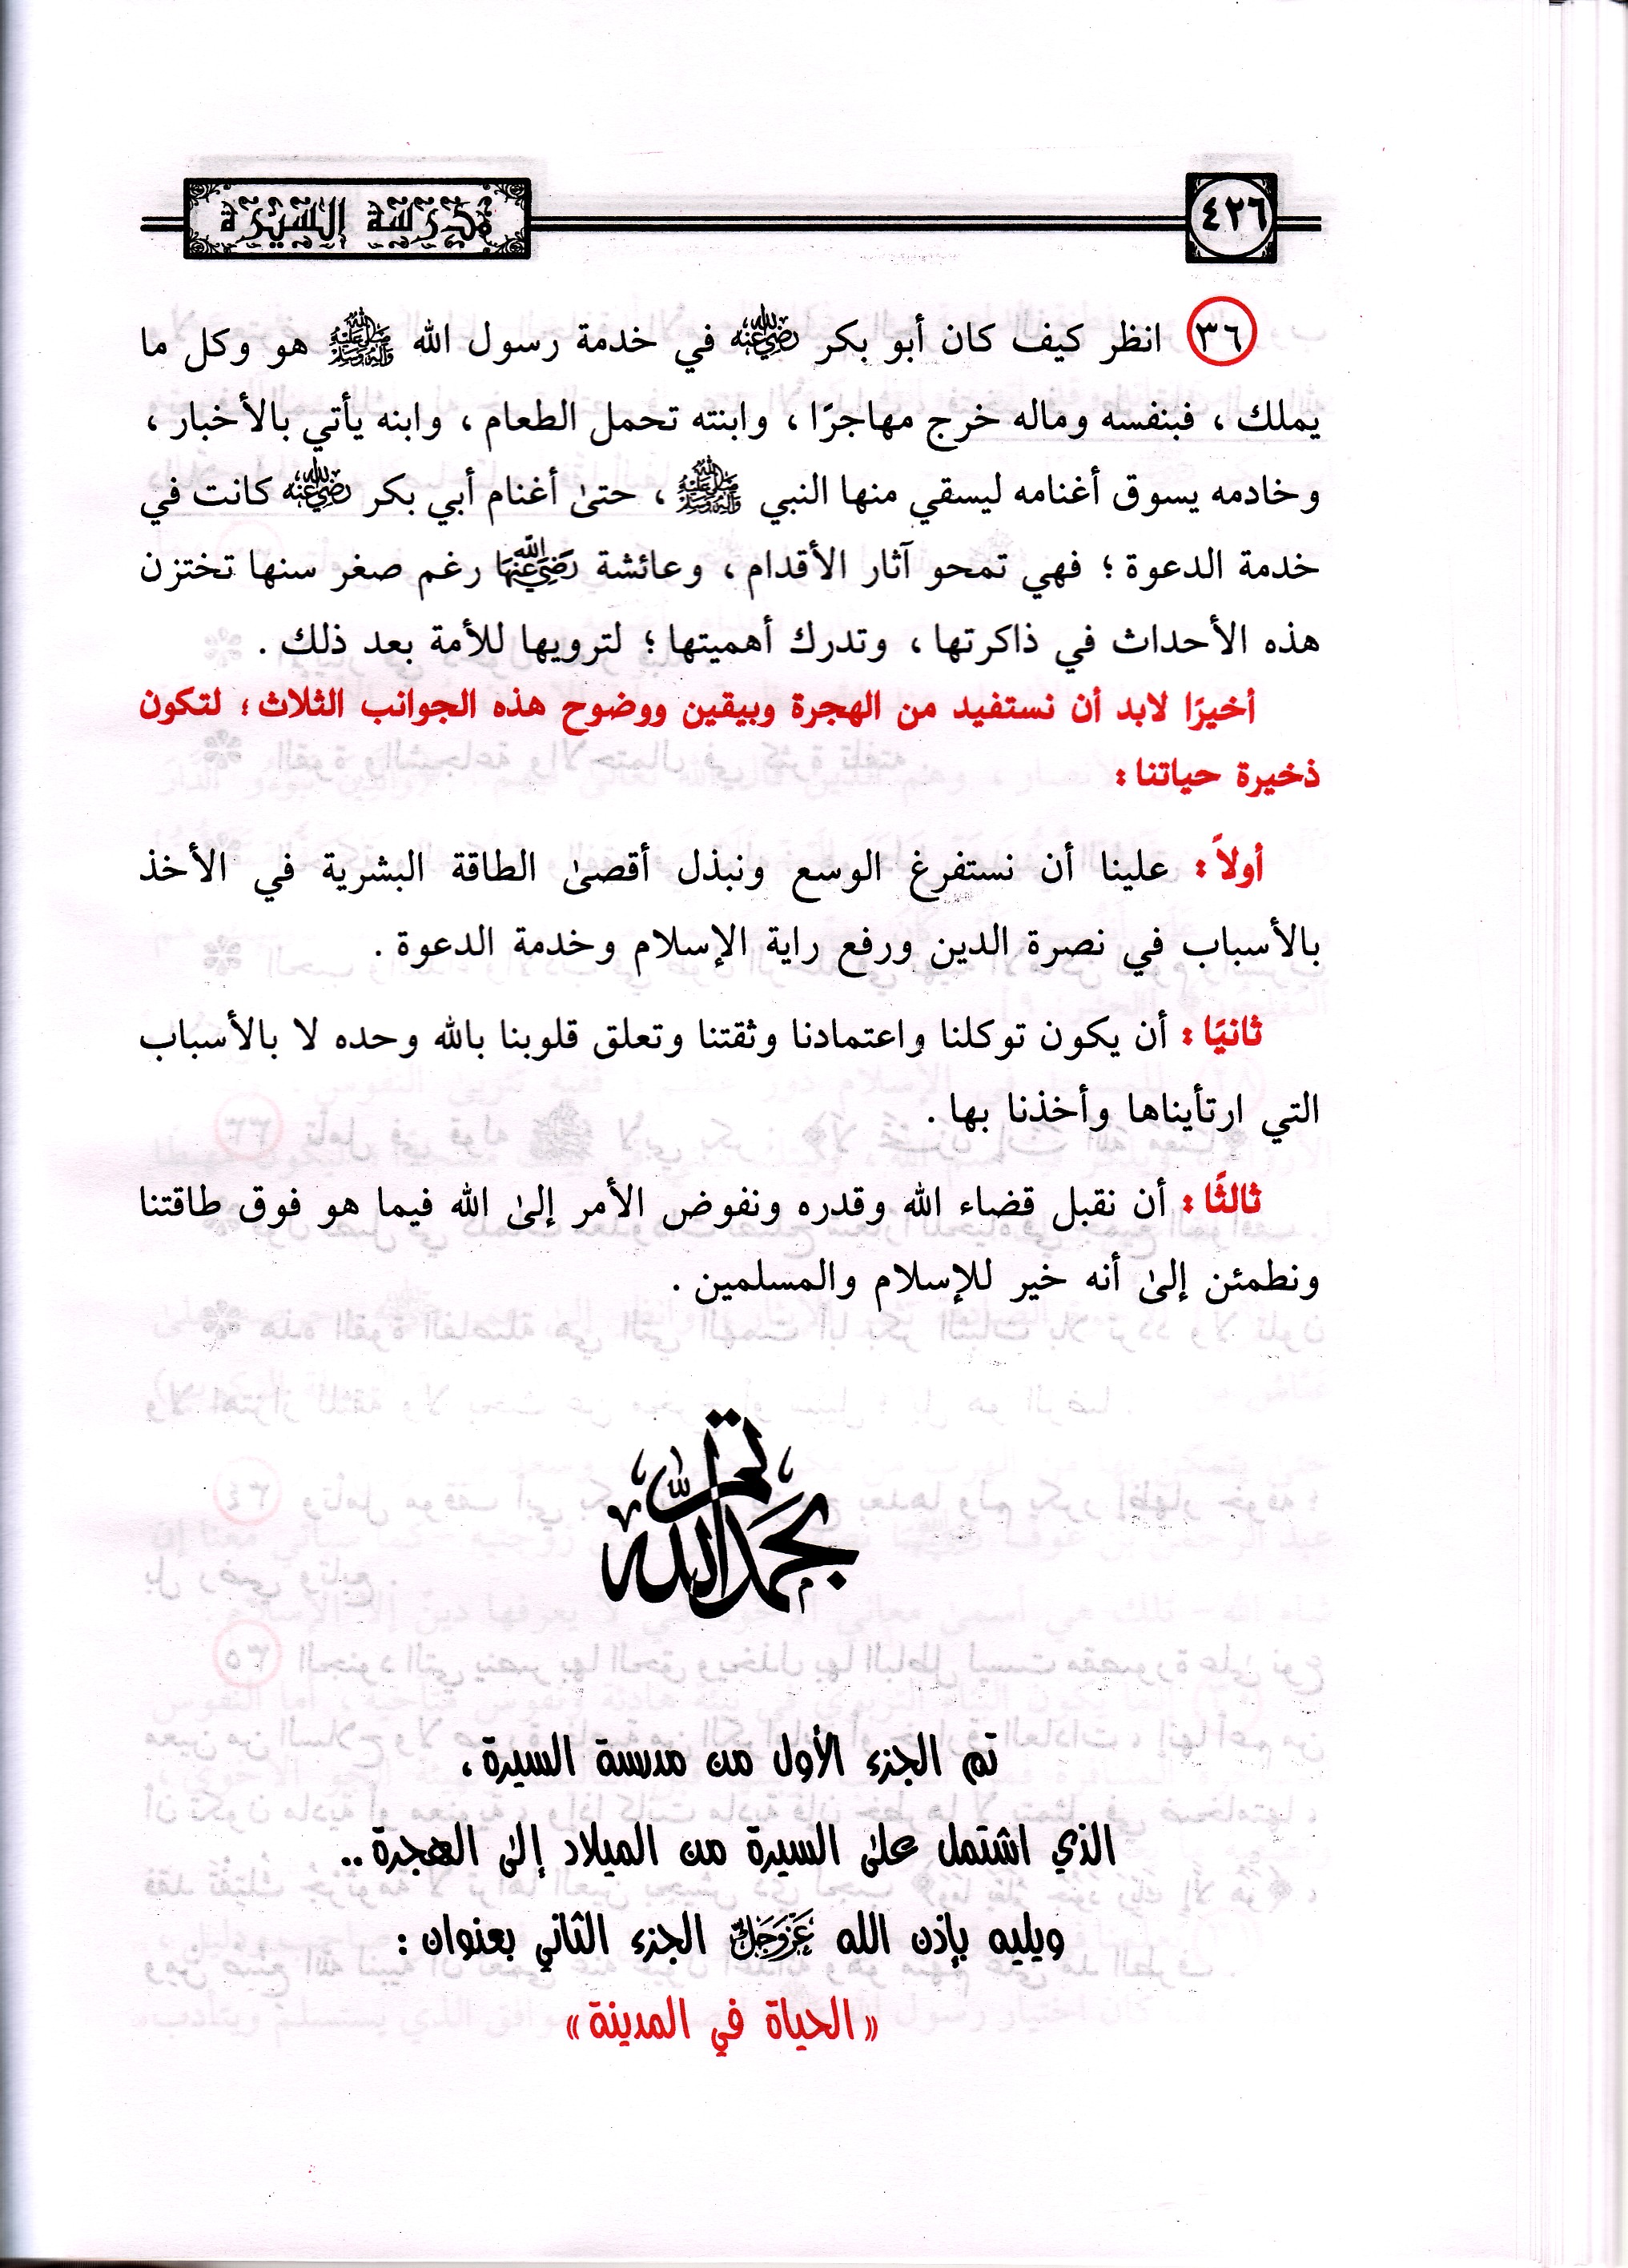 ٤٢٦ مدرسة السيرة
٣٦ انظر كيف كان أبو بكر رضي الله عنه في خدمة رسول الله ﷺ هو وكل ما
يملك ، فبنفسه وماله خرج مهاجرًا ، وابنته تحمل الطعام ، وابنه يأتي بالأخبار ،
وخادمه يسوق أغنامه ليسقي منها النبي ﷺ ، حتىٰ أغنام أبي بكر رضي الله عنه كانت في
خدمة الدعوة ؛ فهي تمحو آثار الأقدام ، وعائشة رضي الله عنها رغم صغر سنها تختزن
هذه الأحداث في ذاكرتها ، وتدرك أهميتها ؛ لترويها للأمة بعد ذلك .
أخيرًا لابد أن نستفيد من الهجرة وبيقين ووضوح هذه الجوانب الثلاث ؛ لتكون
ذخيرة حياتنا :
أولاً : علينا أن نستفرغ الوسع ونبذل أقصىٰ الطاقة البشرية في الأخذ
بالأسباب في نصرة الدين ورفع راية الإسلام وخدمة الدعوة .
ثانيًا : أن يكون توكلنا واعتمادنا وثقتنا وتعلق قلوبنا بالله وحده لا بالأسباب
التي ارتأيناها وأخذنا بها .
ثالثًا : أن نقبل قضاء الله وقدره ونفوض الأمر إلىٰ الله فيما هو فوق طاقتنا
ونطمئن إلىٰ أنه خير للإسلام والمسلمين .
تم
بحمد الله
تم الجزء الأول من مدسة السيرة ،
الذي اشتمل علىٰ السيرة من الميلاد إلىٰ الهجرة ..
ويليه بإذن الله عز وجل الجزء الثاني بعنوان :
« الحياة في المدينة »